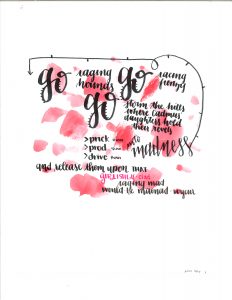 go raging go racing
hounds
go storm the hills
where cadmus'
daughters hold
their revels
> prick them
> prod them into
> drive them madness
and release them upon that
girlishly clad
raging mad
would be maenad voyeur